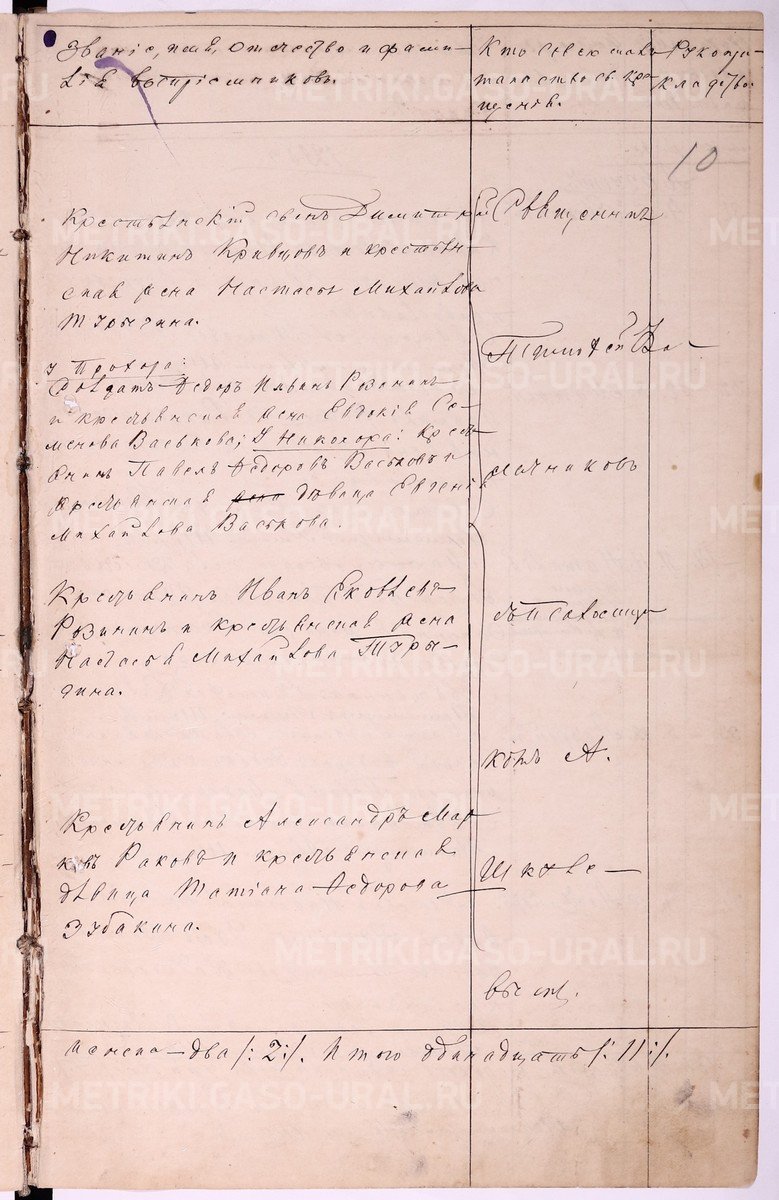 Званіе, имя, отчество и фами-
лія воспріемниковъ.
Кто совершалъ
таинство св. кре-
щенія.
Рукопри-
кладство
10
Крестьянскій сынъ Димитрій
Никитинъ Кривцовъ и крестьян-
ская жена Настасья Михайлова
Турыгина.
У Прохора:
Солдатъ Ѳедоръ Ильинъ
и крестьянская жена Евдокія Се-
менова Васькова; У Никанора: Кресть-
янинъ Павелъ Ѳедоровъ Васьковъ и
крестьянская жена дѣвица Евгенія
Михайлова Васькова.
Крестьянинъ Иванъ Яковлевъ
и крестьянская жена
Настасья Михайлова Туры-
гина.
Крестьянинъ Александръ Мар-
ковъ Раковъ и крестьянская
дѣвица Татіана Ѳедорова
Зубакина.
Священникъ
Тимофей
А.
женска – два /: 2 :/. Итого одинадцать /: 11 :/.
METRIKI.GASO-URAL.RU